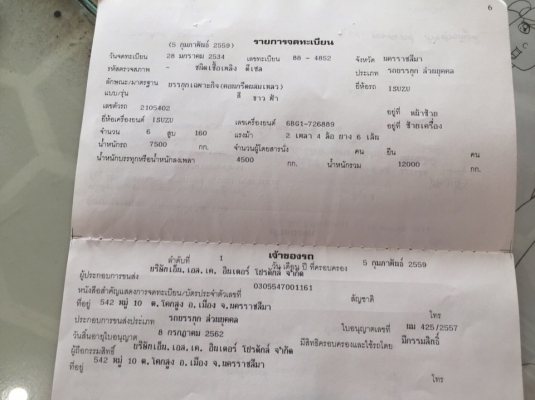 6
(5 กุมภาพันธ์ 2559) รายการจดทะเบียน
วันจดทะเบียน 28 มกราคม 2534 เลขทะเบียน 88 - 4852 จังหวัด นครราชสีมา
รหัสตรวจสภาพ - ชนิดเชื้อเพลิง ดีเซล ประเภท รถบรรทุก ส่วนบุคคล
ลักษณะ/มาตรฐาน บรรทุกเฉพาะกิจ(คอนกรีตผสมเหลว) ยี่ห้อรถ ISUZU
แบบ/รุ่น สี ขาว ฟ้า
เลขตัวรถ 2105402 อยู่ที่ หน้าซ้าย
ยี่ห้อเครื่องยนต์ ISUZU เลขเครื่องยนต์ 6BG1-726889 อยู่ที่ ซ้ายเครื่อง
จำนวน 6 สูบ 160 แรงม้า 2 เพลา 4 ล้อ ยาง 6 เส้น
น้ำหนักรถ 7500 กก. จำนวนผู้โดยสารนั่ง คน ยืน คน
น้ำหนักบรรทุกหรือน้ำหนักลงเพลา 4500 กก. น้ำหนักรวม 12000 กก.
เจ้าของรถ
ลำดับที่ 1 วัน เดือน ปี ที่ครอบครอง 5 กุมภาพันธ์ 2559
ผู้ประกอบการขนส่ง บริษัทเอ็น.เอส.เค. อินเตอร์ โปรดักส์ จำกัด
หนังสือสำคัญแสดงการจดทะเบียน/บัตรประจำตัวเลขที่ 0305547001161 สัญชาติ
ที่อยู่ 542 หมู่ 10 ต.โคกสูง อ.เมือง จ.นครราชสีมา โทร
ประกอบการขนส่งประเภท รถบรรทุก ส่วนบุคคล ใบอนุญาตเลขที่ นม 425/2557
วันสิ้นอายุใบอนุญาต 8 กรกฎาคม 2562 มีสิทธิครอบครองและใช้รถโดย มีกรรมสิทธิ์
ผู้ถือกรรมสิทธิ์ บริษัทเอ็น.เอส.เค. อินเตอร์ โปรดักส์ จำกัด
ที่อยู่ 542 หมู่ 10 ต.โคกสูง อ.เมือง จ.นครราชสีมา โทร